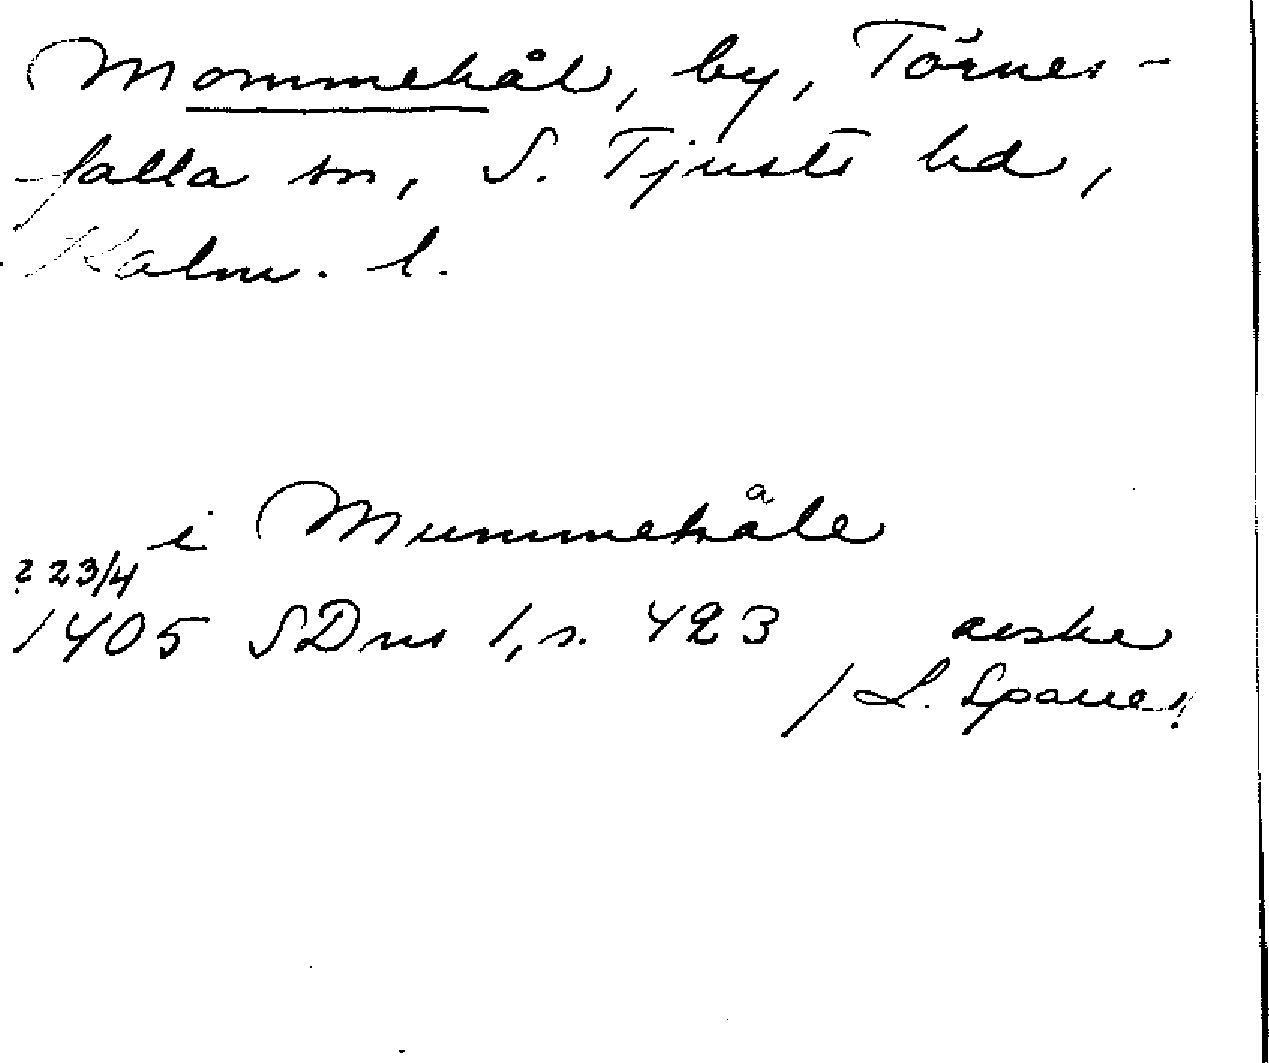 Mommehål, by, Törnes-
falla sn, S. Tjusts hd,
Kalm. l.
i Mummehåle
? 23/4
1405 SDns 1, s. 423 avskr
/ L. Sparre